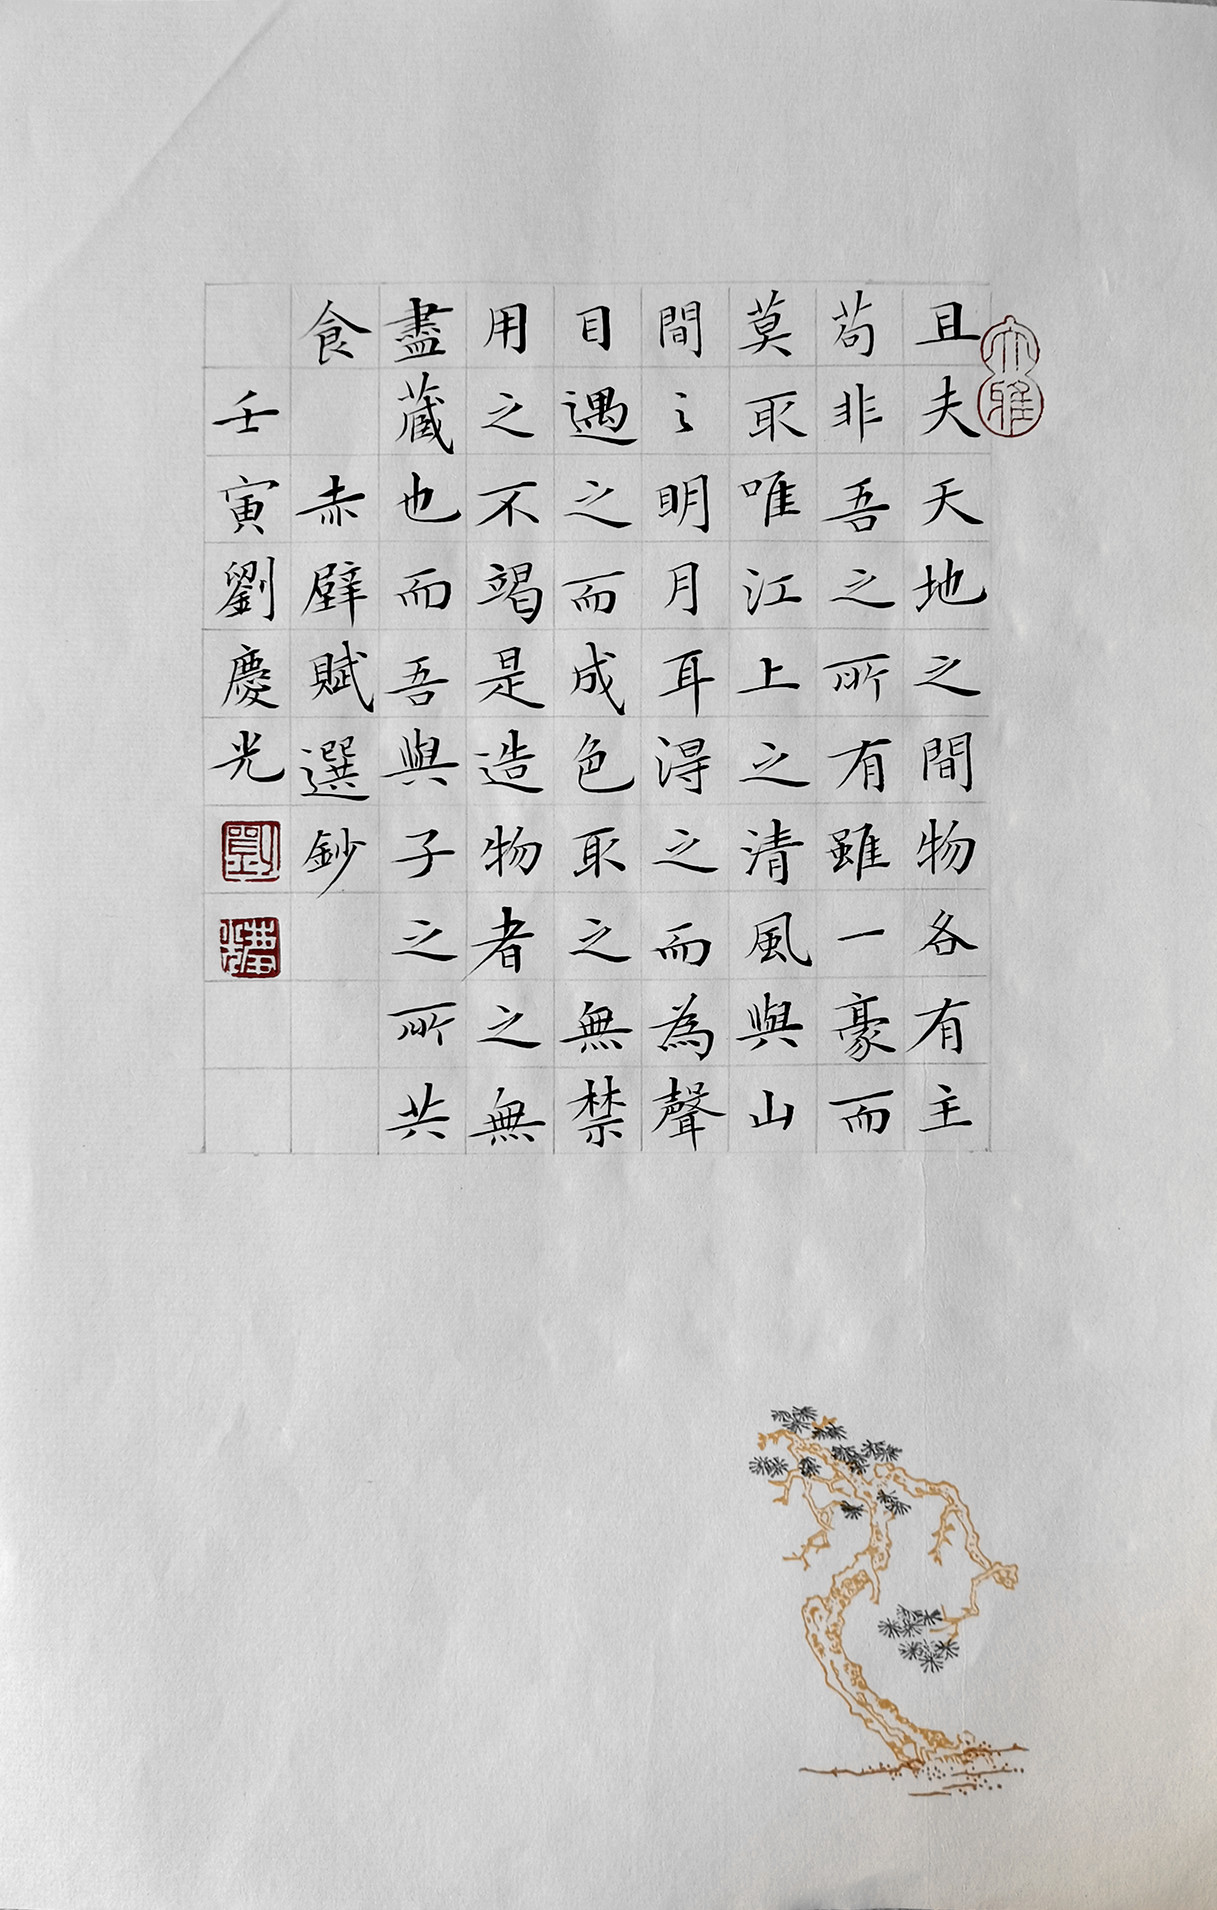 且夫天地之間物各有主
苟非吾之所有雖一豪而
莫取唯江上之清風與山
間之明月耳得之而為聲
目遇之而成色取之無禁
用之不竭是造物者之無
盡藏也而吾與子之所共
食 赤壁賦選鈔
壬寅劉慶光
大雅
劉